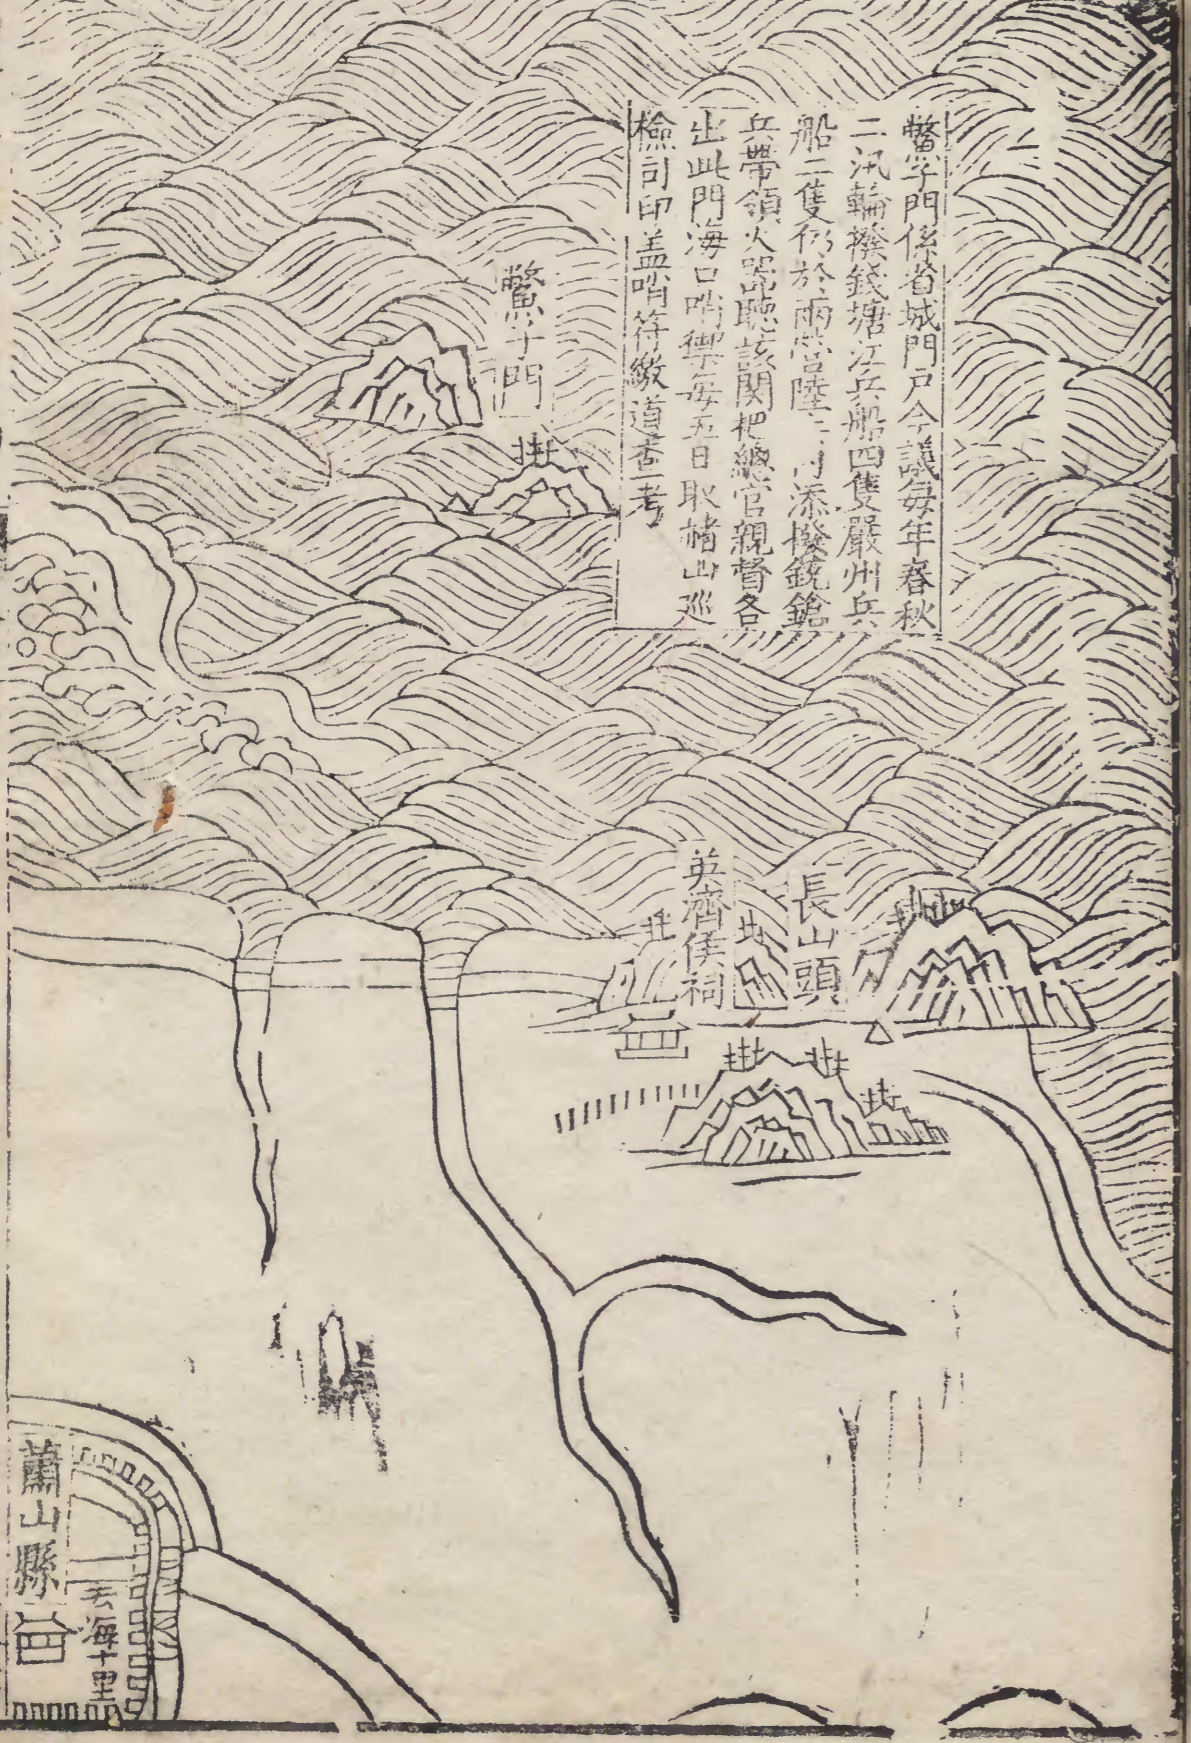 鱉子門係省城門户今議每年春秋
二汛輪撥錢塘江兵船四隻嚴州兵
船二隻仍於兩營陸 添撥銃鎗
兵帶領火器聽該関把總官親督各
出此門海口哨禦每五日取赭山巡
檢司印盖哨符繳道查考
鱉子門
長山頭
英濟侯祠
蕭山縣
去海十里